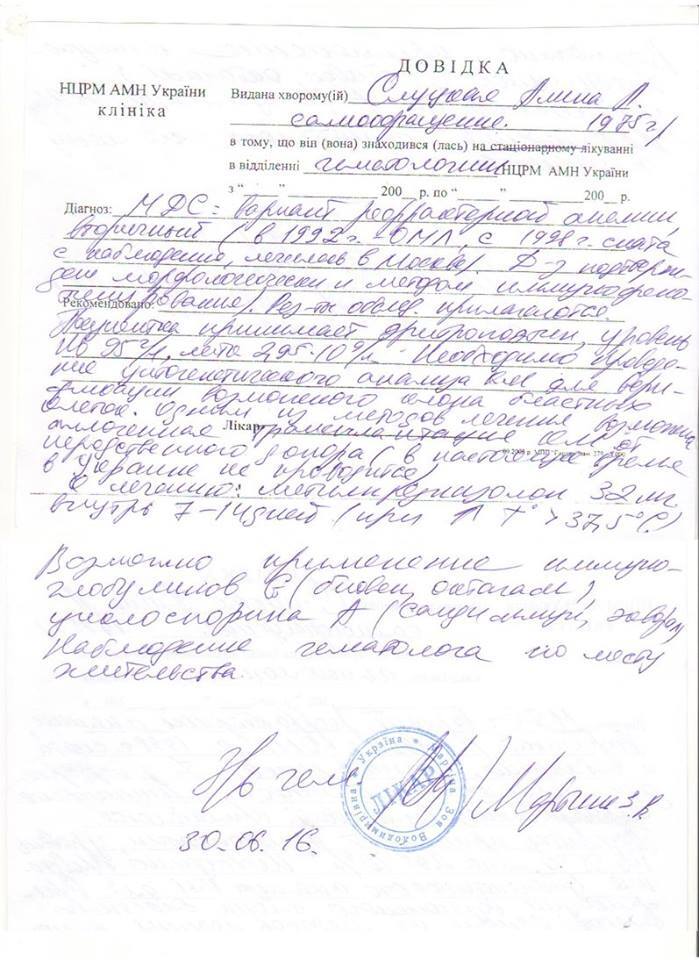 ДОВІДКА
НЦРМ АМН України
клініка
Видана хворому(ій) Слуцкая Алина А.
самообращение. 1975 г/
в тому, що він (вона) знаходився (лась) на стаціонарному лікуванні
в відділенні гематологии НЦРМ АМН України
з “ ” 200 р. по “ ” 200 р.
Діагноз: МДС: Вариант рефрактерной анемии,
вторичный (в 1992 г. ОМЛ, с 1998 г. снята
с наблюдения, лечилась в Москве). Д-з подтверж
ден морфологически и методом иммунофено
типирование). Рез-ты обслед. прилагаются.
Рекомендовано:
Пациентка принимает уровень
Нв 95 г/л, 2,95·10⁹/л. Необходимо проведе-
ние цитогенетического анализа для вери-
фикации возможного клона бластных
клеток. Одним из методов лечения возможна
аллогенная трансплантация от
Лікар
неродственного донора (в настоящее время
в Украине не проводится)
К лечению: метилпреднизолон 32 мг
внутрь 7-14 дней (при ↑ t° > 37,5°C)
Возможно применение иммуно-
глобулинов G (биовен, октагам)
циклоспорина А (сандиммун,
Наблюдение гематолога по месту
жительства.
30.06.16.
Україна * Марціна Зоя Володимирівна *
ЛІКАР